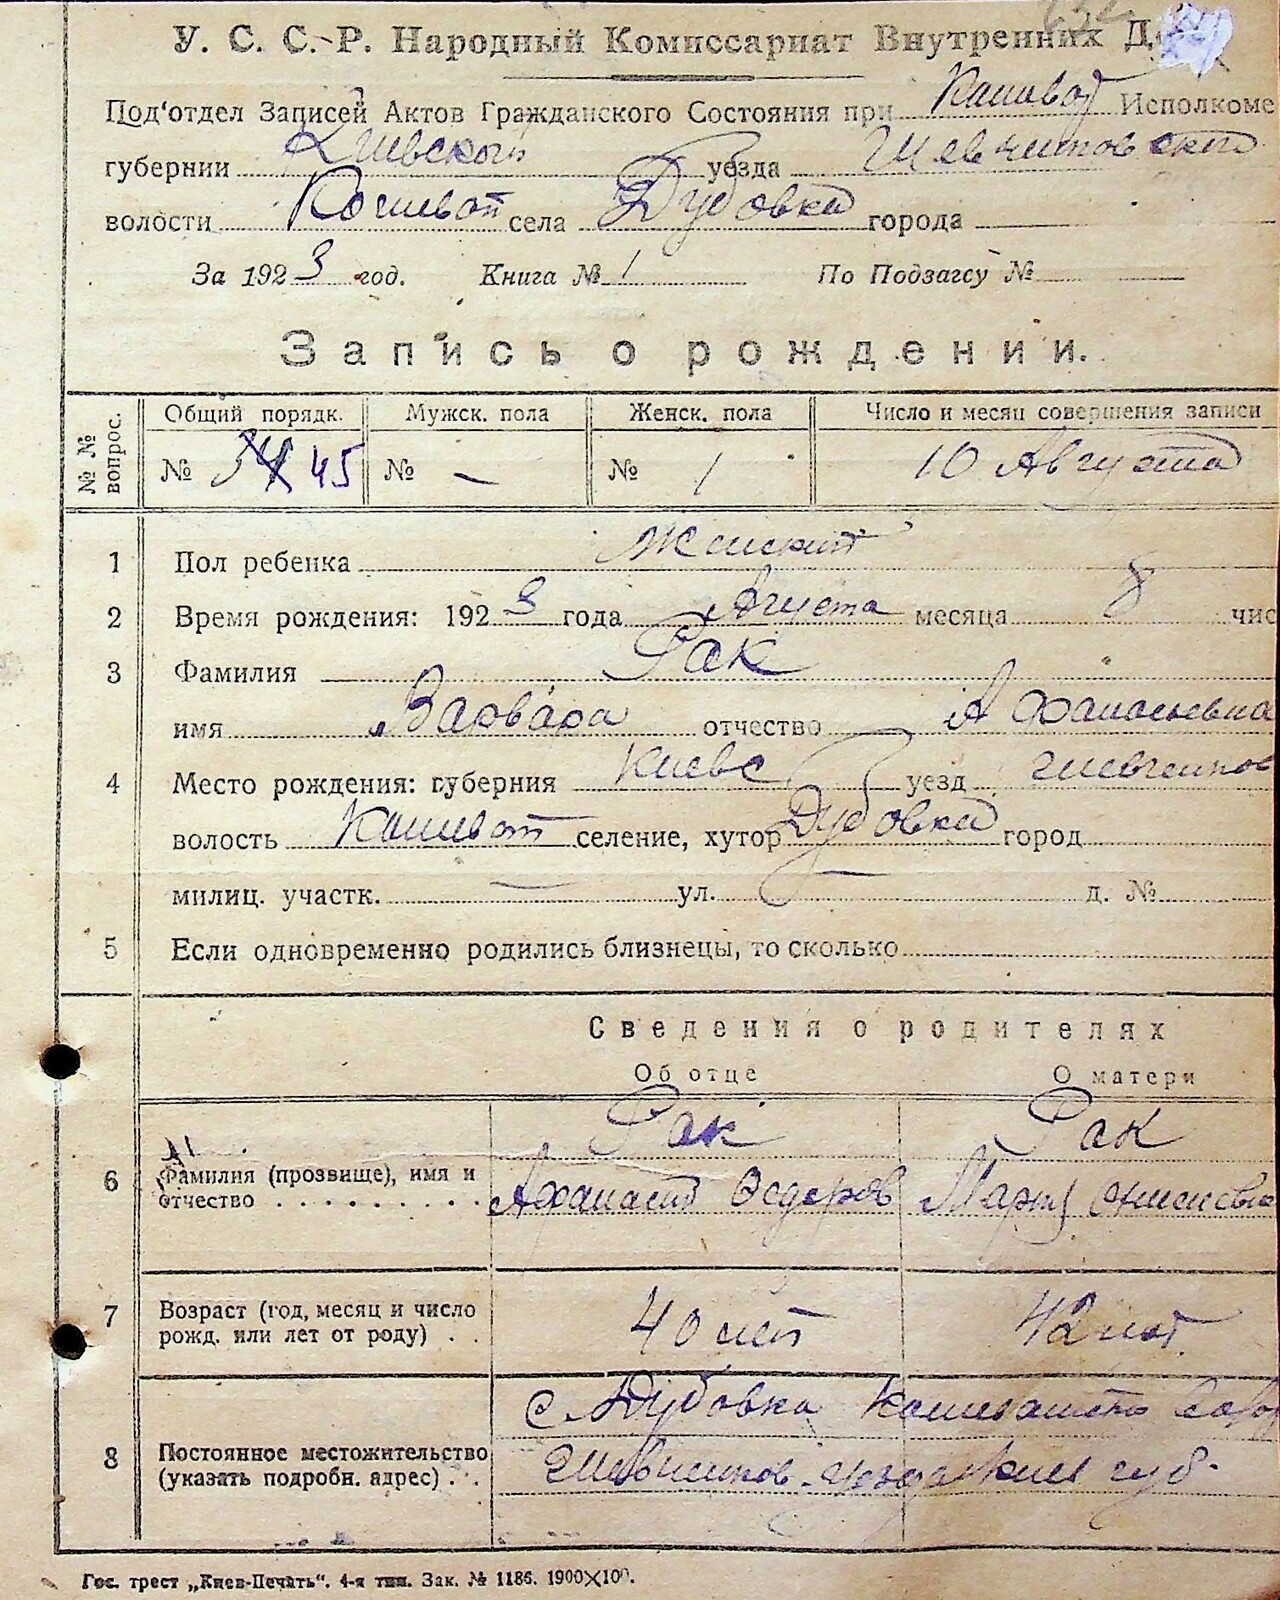 У. С. С. Р. Народный Комиссариат Внутренних
Под'отдел Записей Актов Гражданского Состояния при Кашеват Исполкоме
губернии Киевской уезда Шевченковского
волости Кошеват села Дубовка города
За 1923 год. Книга № 1 По Подзагсу №
Запись о рождении.
№ № вопрос. Общий порядк. Мужск. пола Женск. пола Число и месяц совершения записи
№ 45 № — № 1 10 Августа
1 Пол ребенка Женский
2 Время рождения: 1923 года Августа месяца 8 чис
3 Фамилия Рак
имя Варвара отчество Афанасьевна
4 Место рождения: губерния Киевс уезд Шевченков
волость Кашеват селение, хутор Дубовка город
милиц. участк. — ул. — д. №
5 Если одновременно родились близнецы, то сколько
Сведения о родителях
Об отце О матери
Рак Рак
6 Фамилия (прозвище), имя и отчество Афанасий Федоров Мария
7 Возраст (год, месяц и число рожд. или лет от роду) 40 лет 42 лет
с. Дубовка
8 Постоянное местожительство (указать подробн. адрес) Шевченков. уезда Киев губ.
Гос. трест „Киев-Печать". 4-я тип. Зак. № 1186. 1900×100.